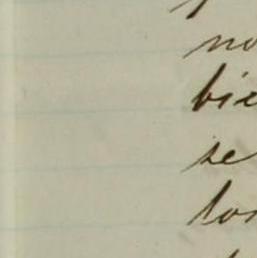 no
bie
se
los